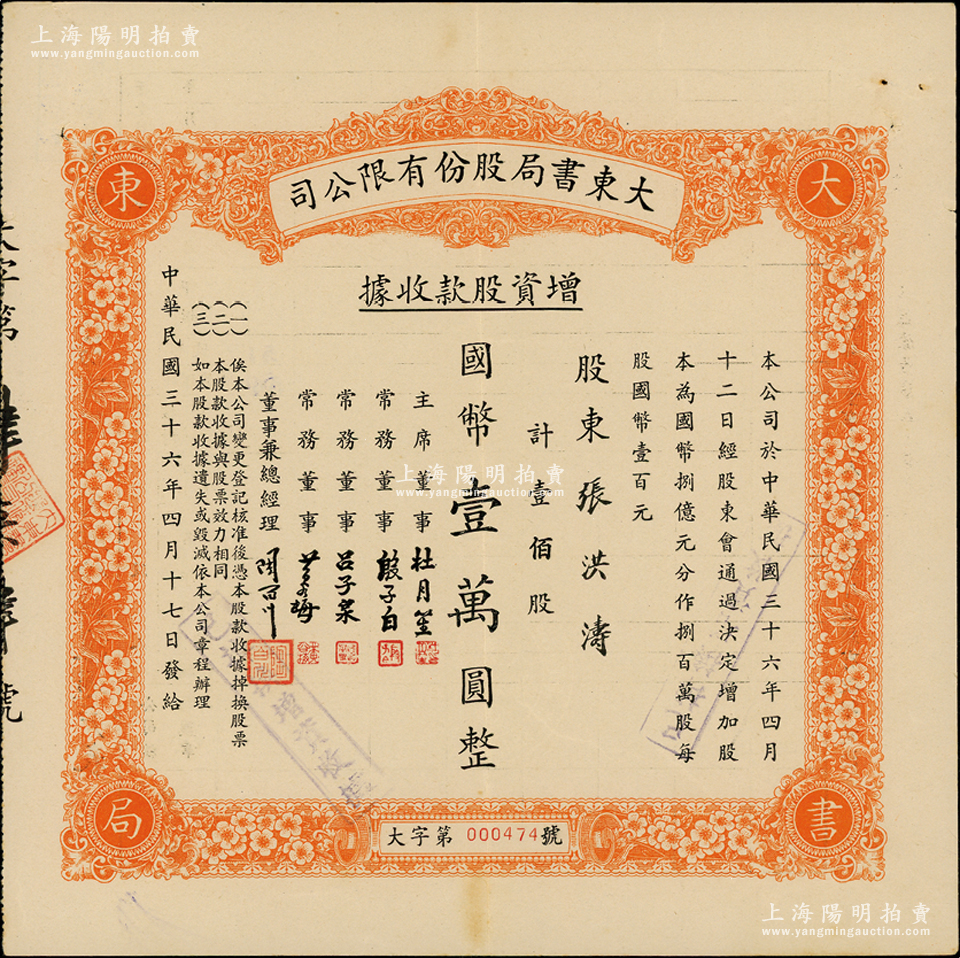 上海陽明拍賣
www.yangmingauction.com
大東書局股份有限公司
大
東
書
局
增資股款收據
本公司於中華民國三十六年四月
十二日經股東會通過決定增加股
本為國幣捌億元分作捌百萬股每
股國幣壹百元
股東張洪濤
計壹佰股
國幣壹萬圓整
主席董事 杜月笙
常務董事 殷子白
常務董事 呂子泉
常務董事
董事兼總經理 陶百川
(一) 俟本公司變更登記核准後憑本股款收據掉換股票
(二) 本股款收據與股票效力相同
(三) 如本股款收據遺失或毀滅依本公司章程辦理
中華民國三十六年四月十七日發給
大字第 000474號
上海陽明拍賣
www.yangmingauction.com
上海陽明拍賣
www.yangmingauction.com